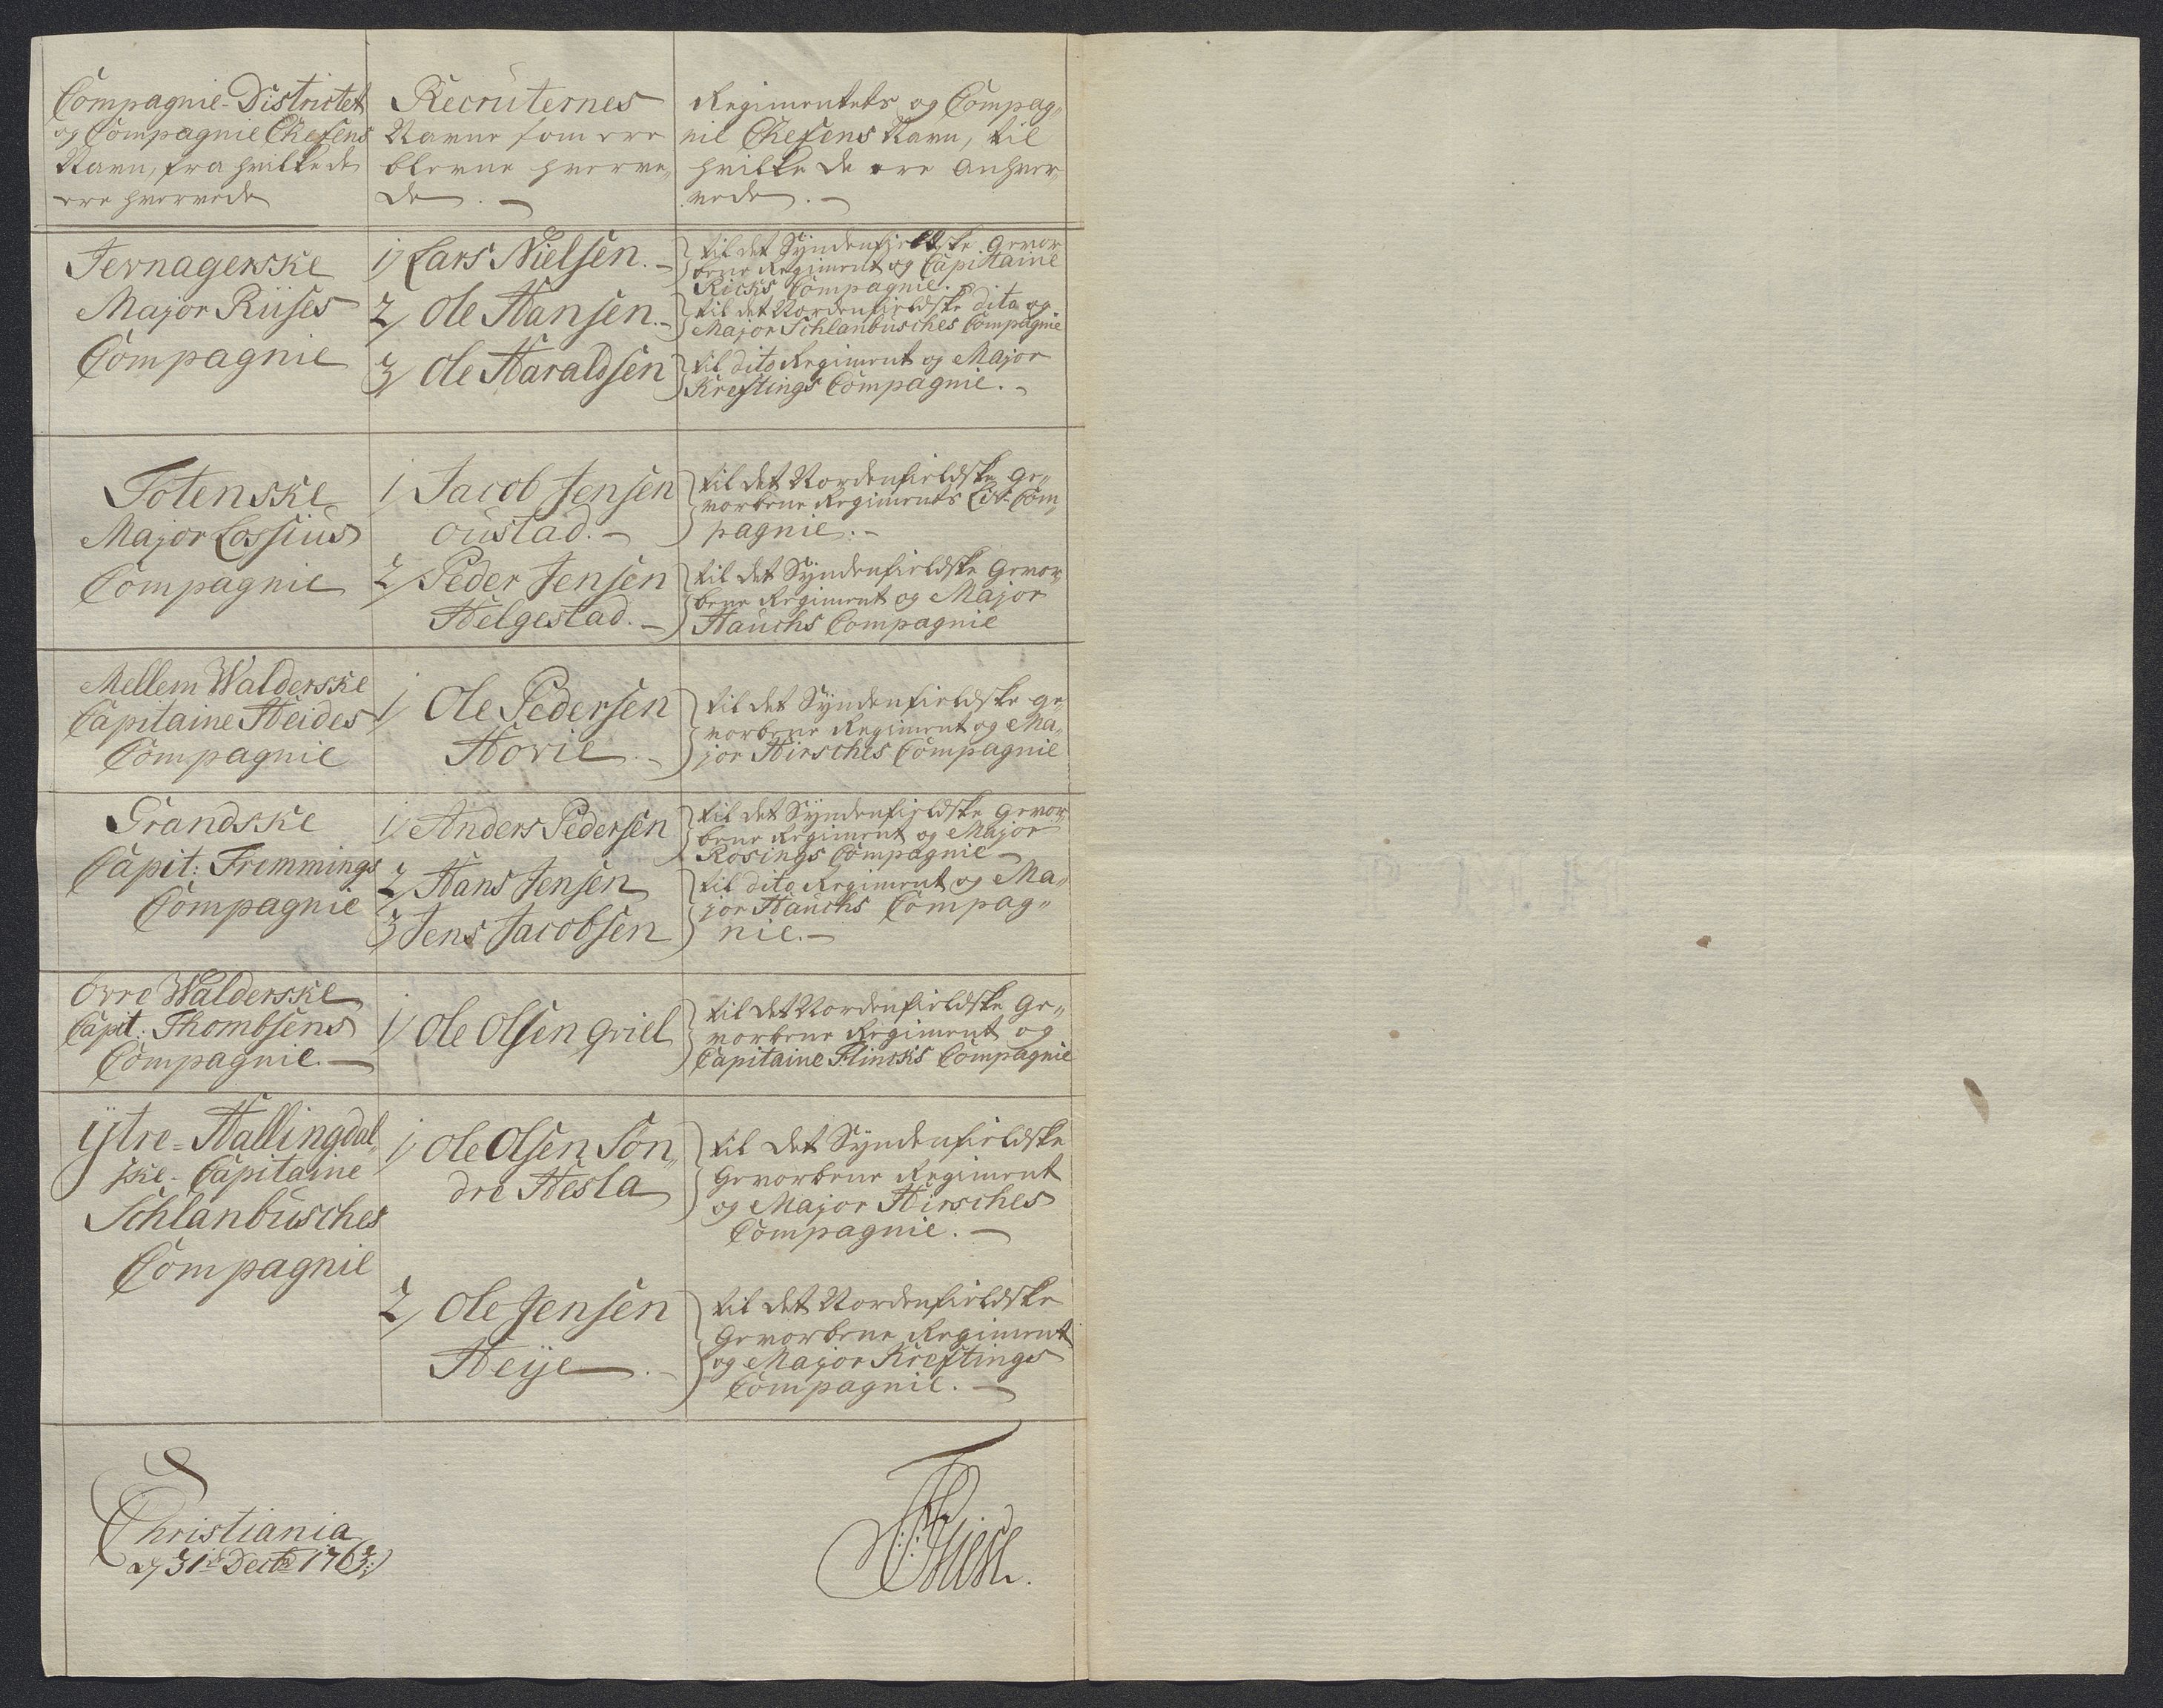 Compagnie-Districtet
og Compagnie Chefens
Navn, fra hvilke de
ere hvervede
Recruternes
Navne som ere
blevne hverve„
de. —
Regimentets og Compag„
nie Chefens Navn, til
hvilke de ere anhver„
vede. —
Jevnagerske
Major Riises
Compagnie
1) Lars Nielsen. —
2) Ole Hansen. —
3) Ole Haraldsen
til det Syndenfieldske Gevor
bene Regiment og Capitaine
Ricks Compagnie.
til det Nordenfieldske dito og
Major Schlanbusches Compagnie
til dito Regiment og Major
Kreftings Compagnie. —
Totenske
Major Lossius
Compagnie
1 Jacob Jensen
oustad. —
2) Peder Jensen
Helgestad. —
til det Nordenfieldske Ge„
vorbene Regiments Liv-Com„
pagnie. —
til det Syndenfieldske Gevor„
bene Regiment og Major
Hauchs Compagnie
Mellem Walderske
Capitaine Heides
Compagnie
1) Ole Pedersen
Hovie. —
til det Syndenfieldske ge„
vorbene Regiment og Ma„
jor Hirsches Compagnie
Grandske
Capit: Fremmings
Compagnie
1) Anders Pedersen
2) Hans Jensen
3) Jens Jacobsen
til det Syndenfieldske Gevor„
bene Regiment og Major
Rosings Compagnie —
til dito Regiment og Ma„
jor Hauchs Compag„
nie. —
Övre Walderske
Capit. Thombsens
Compagnie. —
1) Ole Olsen Qviel
til det Nordenfieldske Ge„
vorbene Regiment og
Capitaine Flincks Compagnie
Ÿtre-Hallingdal„
ske-Capitaine
Schlanbusches
Compagnie
1) Ole Olsen Sön„
dre Hesla
til det Syndenfieldske
Gevorbene Regiment
og Major Hirsches
Compagnie. —
2) Ole Jensen
Heÿe. —
til det Nordenfieldske
Gevorbene Regiment
og Major Kreftings
Compagnie. —
Christiania
31te Decbr 1763